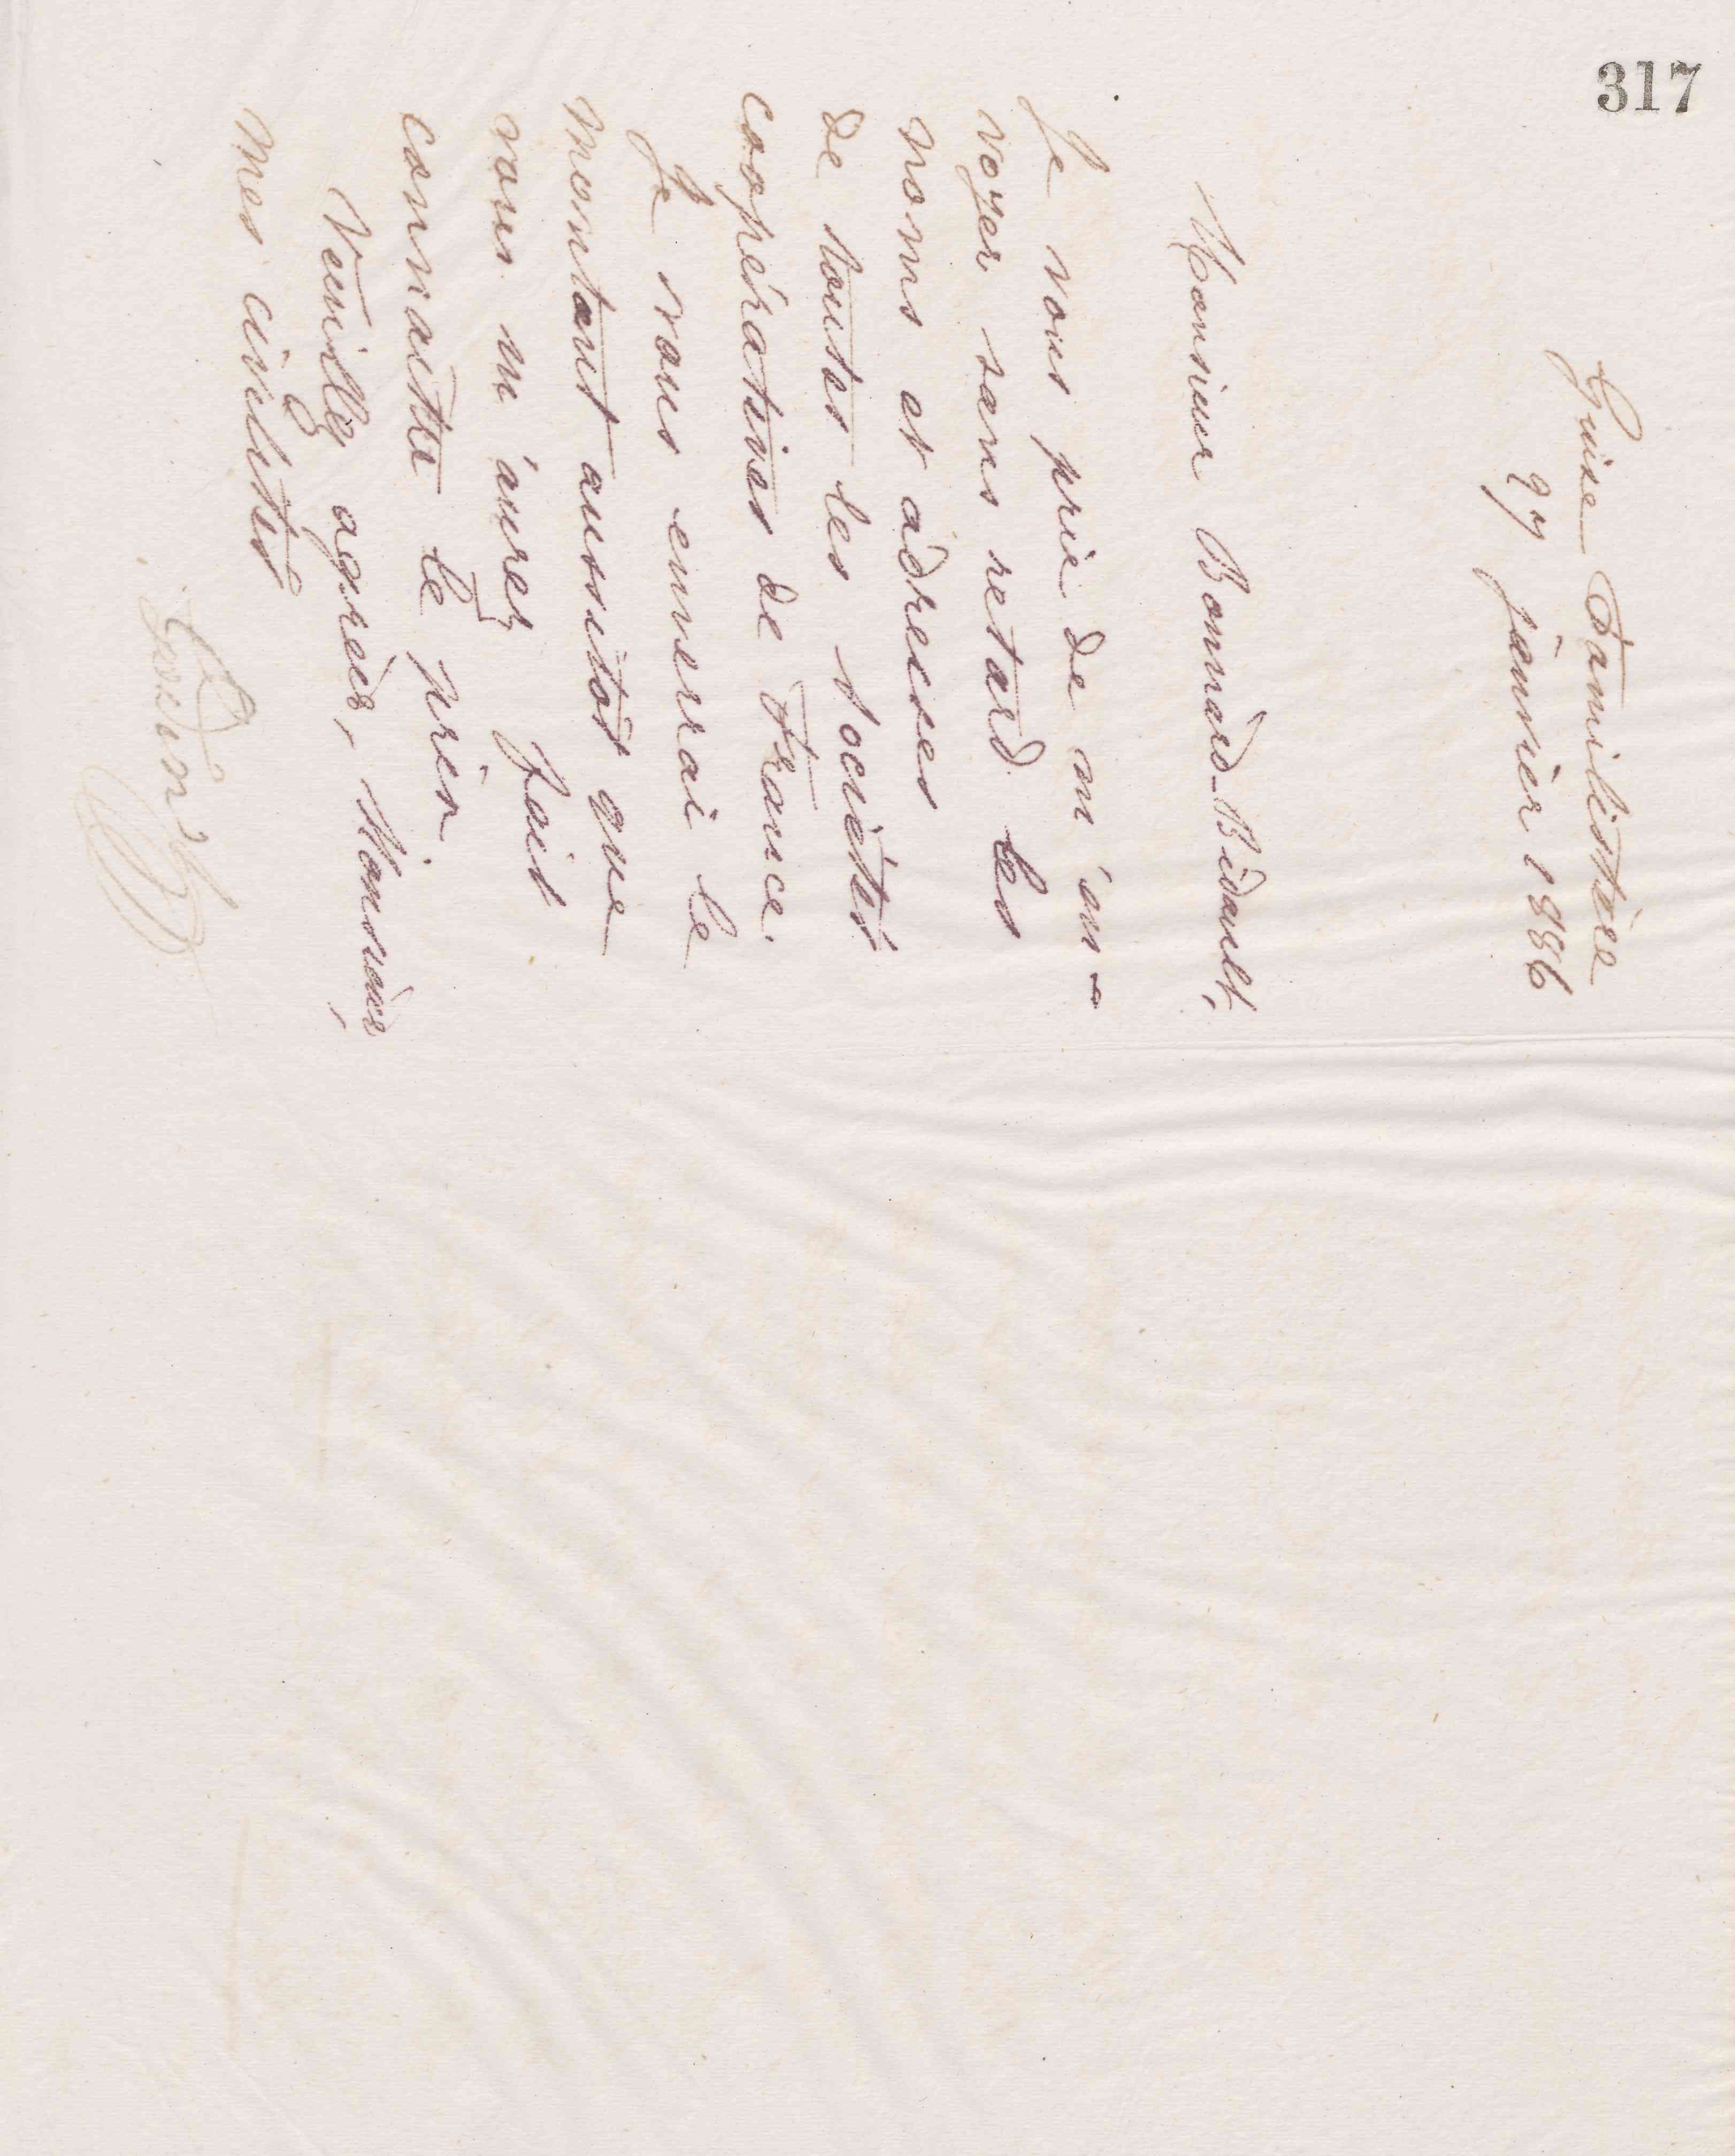 317
Guise Familistère
27 janvier 1886
Monsieur Bonnard-Bidault,
Je vous prie de m'en-
voyer sans retard les
noms et adresses
de toutes les sociétés
coopératives de France.
Je vous enverrai le
montant aussitôt que
vous m'aurez fait
connaître le prix.
Veuillez agréer, Monsieur,
mes civilités
Godin